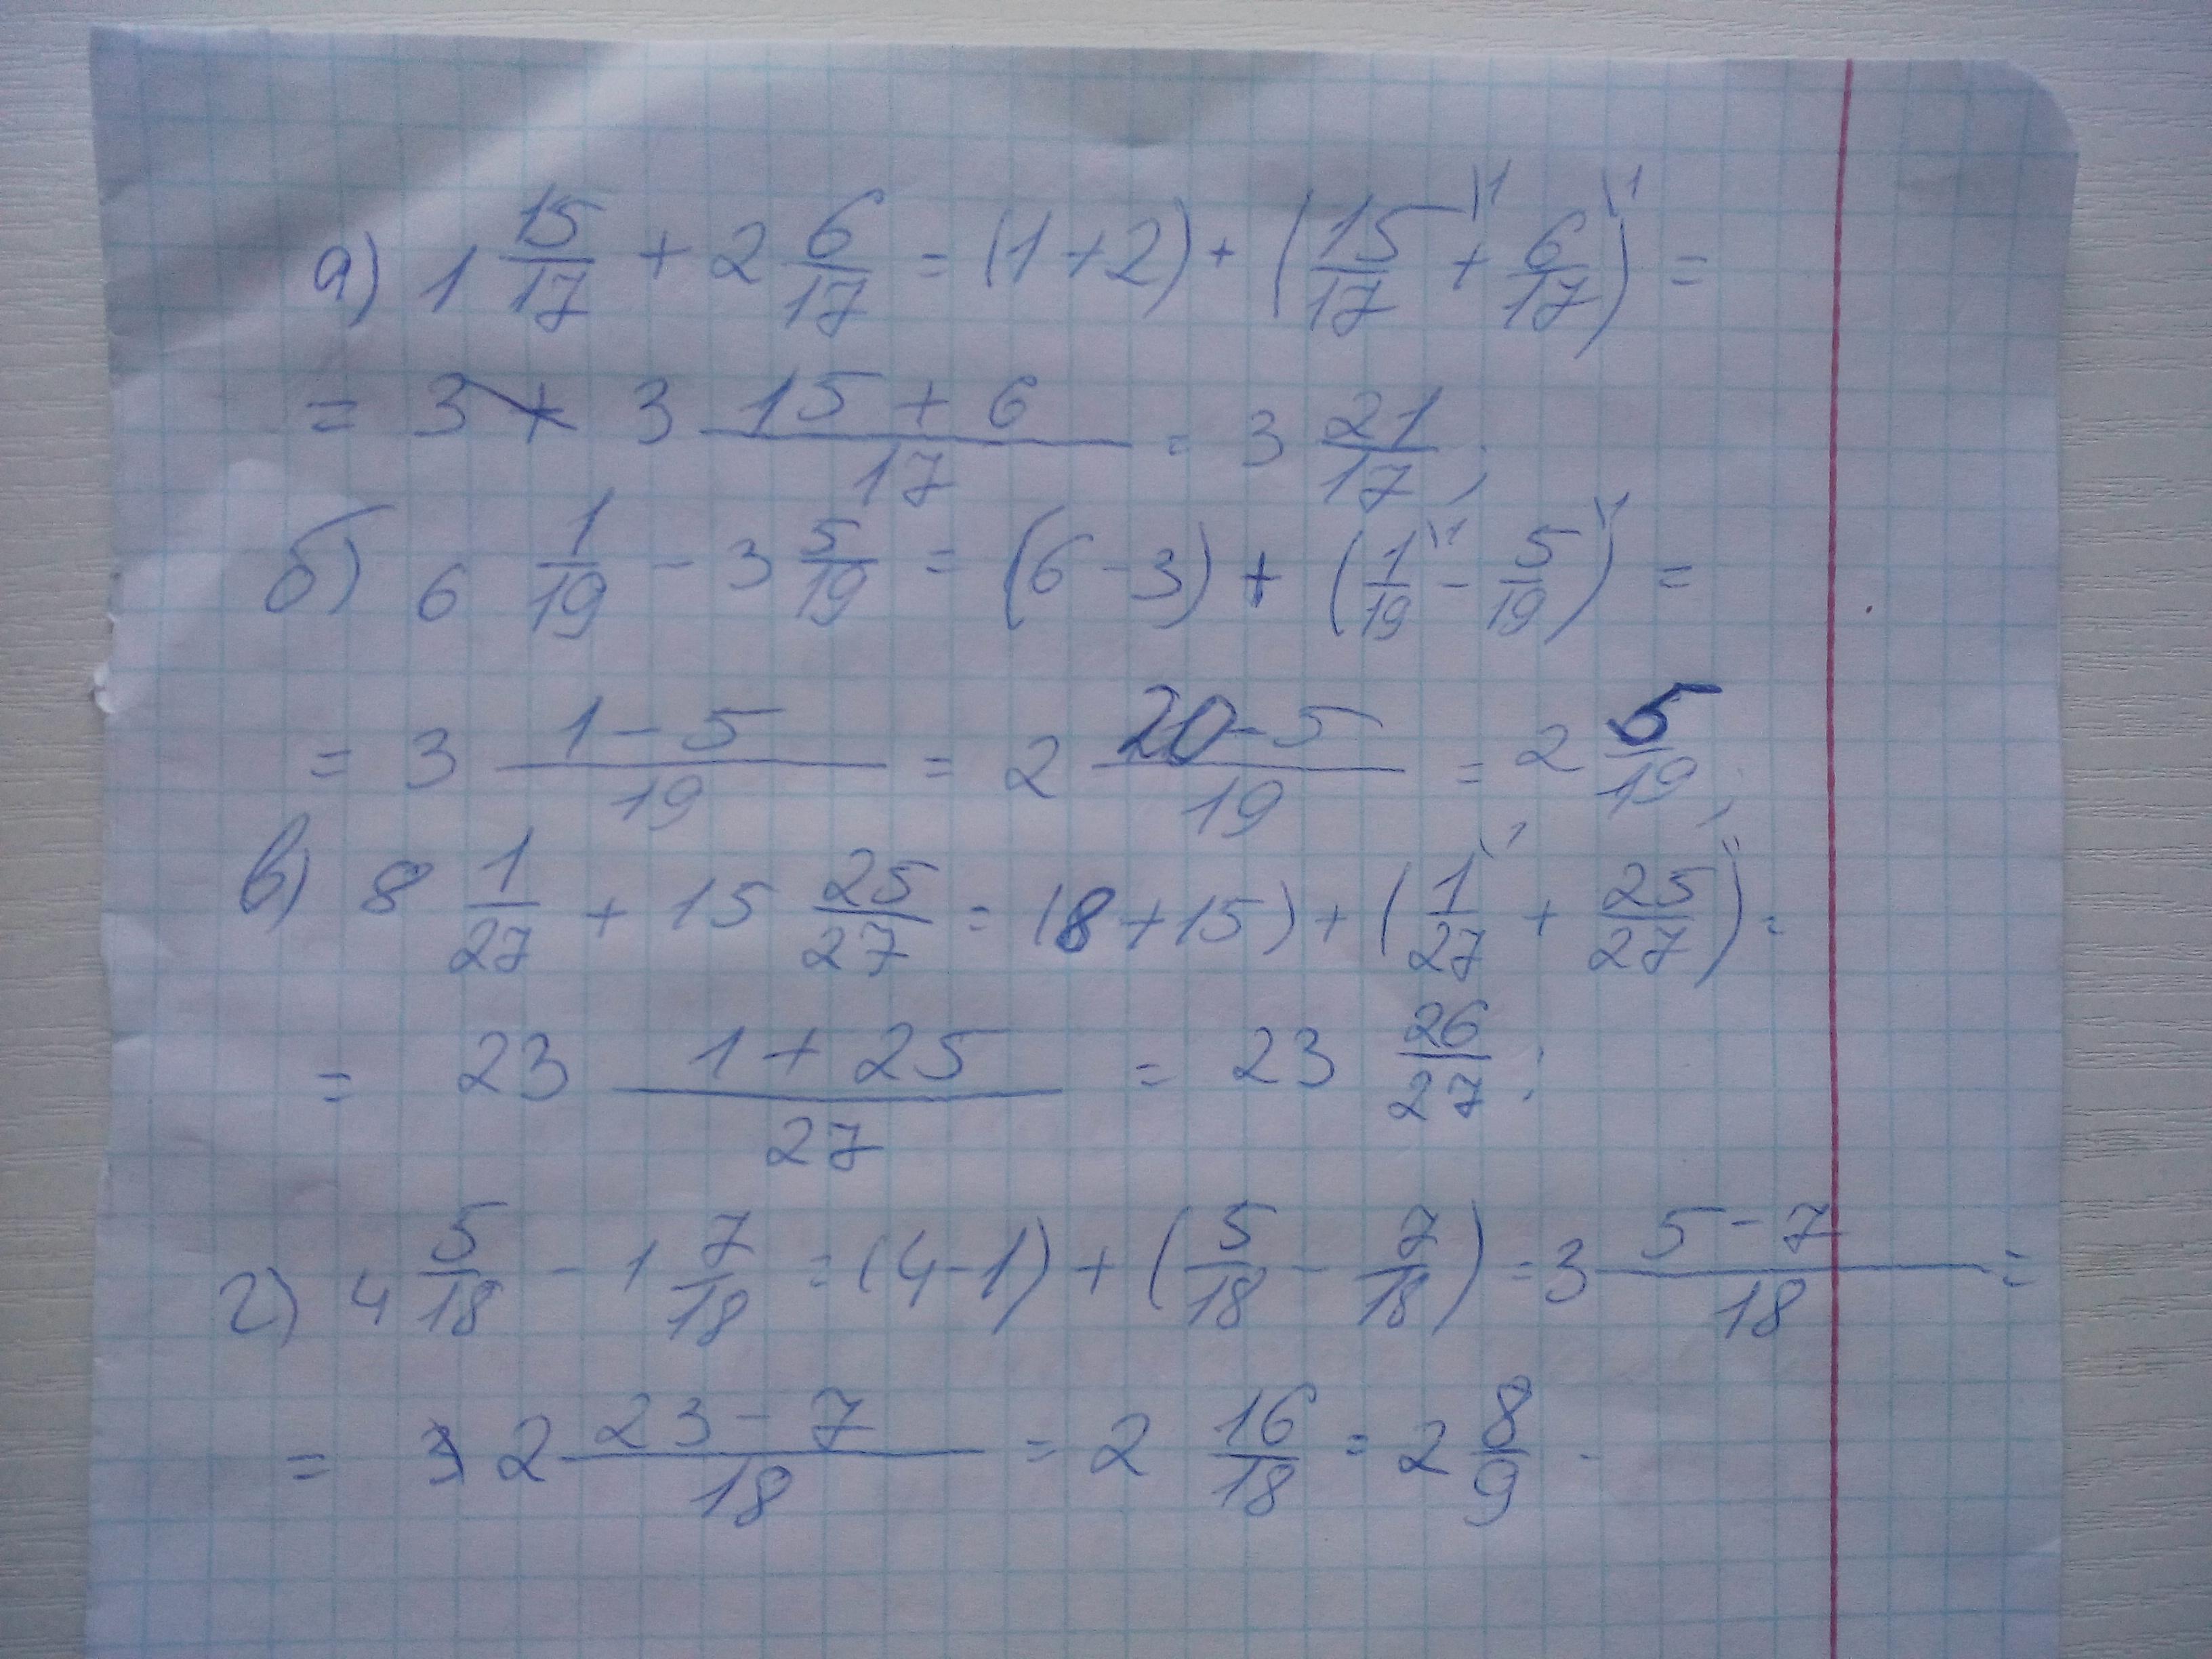 а) 1 15/17 + 2 6/17 = (1+2) + (15/17\1 + 6/17\1) =
= 3 + 3 (15 + 6)/17 = 3 21/17;
б) 6 1/19 - 3 5/19 = (6 - 3) + (1/19\1 - 5/19\1) =
= 3 (1 - 5)/19 = 2 (20 - 5)/19 = 2 5/19;
в) 8 1/27 + 15 25/27 = (8 + 15) + (1/27\1 + 25/27\1) =
= 23 (1 + 25)/27 = 23 26/27;
г) 4 5/18 - 1 7/18 = (4-1) + (5/18 - 7/18) = 3 (5 - 7)/18 =
= 2 (23 - 7)/18 = 2 16/18 = 2 8/9.